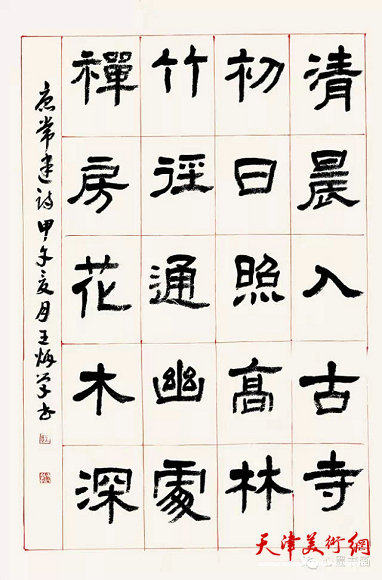 清晨入古寺
初日照髙林
竹徑通幽處
禪房花木深
唐常建詩甲午夏月王炳学书
天津美術網